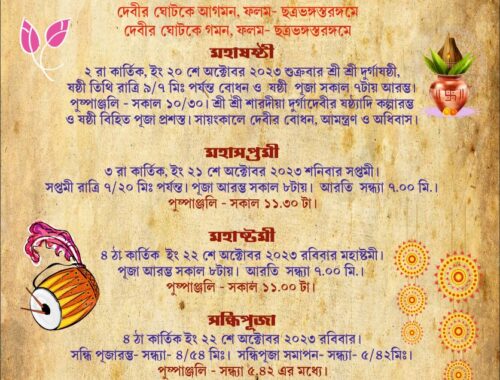 দেবীর ঘোটকে আগমন, ফলম- ছত্রভঙ্গস্তরঙ্গমে
দেবীর ঘোটকে গমন, ফলম- ছত্রভঙ্গস্তরঙ্গমে
মহাষষ্ঠী
২ রা কার্তিক, ইং ২০ শে অক্টোবর ২০২৩ শুক্রবার শ্রী শ্রী দুর্গাষষ্ঠী,
ষষ্ঠী তিথি রাত্রি ৯/৭ মিঃ পর্যন্ত বোধন ও ষষ্ঠী পূজা সকাল ৭টায় আরম্ভ।
পুষ্পাঞ্জলি - সকাল ১০/৩০। শ্রী শ্রী শারদীয়া দুর্গাদেবীর ষষ্ঠ্যাদি কল্পারম্ভ
ও ষষ্ঠী বিহিত পূজা প্রশস্ত। সায়ংকালে দেবীর বোধন, আমন্ত্রণ ও অধিবাস।
মহাসপ্তমী
৩ রা কার্তিক, ইং ২১ শে অক্টোবর ২০২৩ শনিবার সপ্তমী।
সপ্তমী রাত্রি ৭/২০ মিঃ পর্যন্ত। পূজা আরম্ভ সকাল ৮টায়। আরতি সন্ধ্যা ৭.০০ মি.।
পুষ্পাঞ্জলি - সকাল ১১.৩০ টা।
মহাষ্টমী
৪ ঠা কার্তিক ইং ২২ শে অক্টোবর ২০২৩ রবিবার মহাষ্টমী।
পূজা আরম্ভ সকাল ৮টায়। আরতি সন্ধ্যা ৭.০০ মি.।
পুষ্পাঞ্জলি - সকাল ১১.০০ টা।
সন্ধিপূজা
৪ ঠা কার্তিক ইং ২২ শে অক্টোবর ২০২৩ রবিবার।
সন্ধি পূজারম্ভ- সন্ধ্যা- ৪/৫৪ মিঃ। সন্ধিপূজা সমাপন- সন্ধ্যা- ৫/৪২মিঃ।
পুষ্পাঞ্জলি - সন্ধ্যা ৫.৪২ এর মধ্যে।